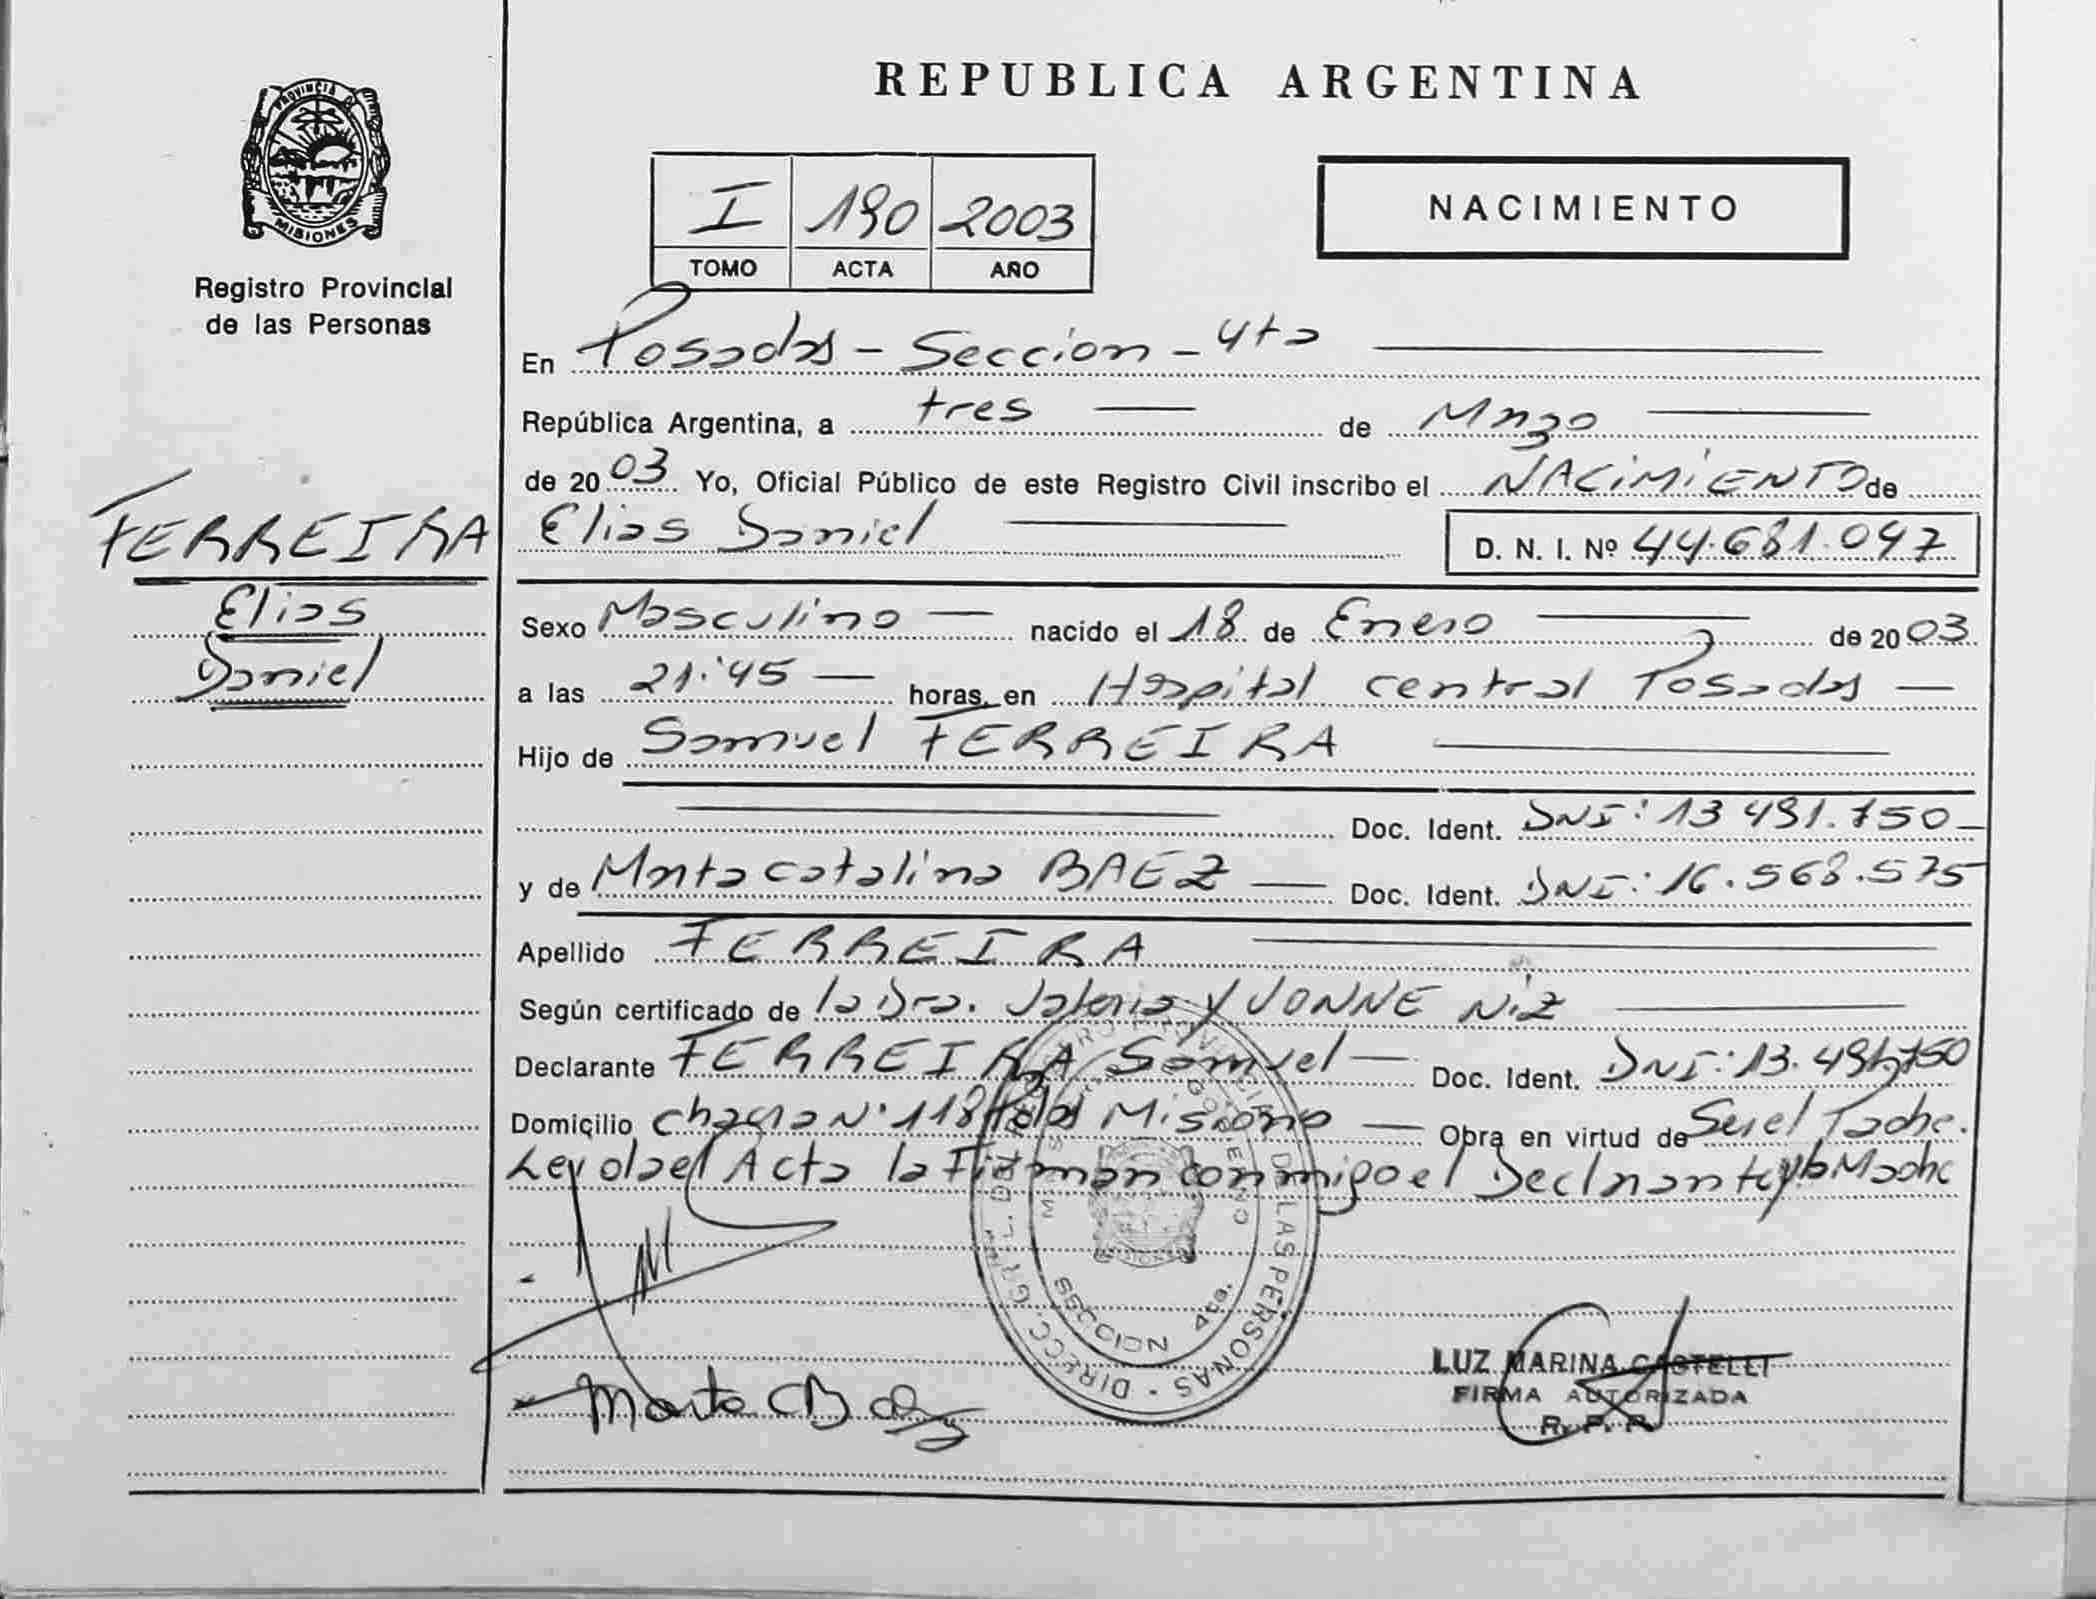 REPUBLICA ARGENTINA
PROVINCIA DE
MISIONES
Registro Provincial
de las Personas
I 190 2003
TOMO ACTA AÑO
NACIMIENTO
En Posadas - Seccion - 4ta
República Argentina, a tres de Marzo
de 2003 Yo, Oficial Público de este Registro Civil inscribo el NACIMIENTO de
Elias Daniel D. N. I. Nº 44.681.047
FERREIRA
Elias
Daniel
Sexo Masculino nacido el 18 de Enero de 2003
a las 21:45 horas, en Hospital central Posadas
Hijo de Samuel FERREIRA
Doc. Ident. DNI: 13 491.750
y de Marta catalina BAEZ Doc. Ident. DNI: 16.568.575
Apellido FERREIRA
Según certificado de la Dra. Valeria YVONNE Niz
Declarante FERREIRA Samuel Doc. Ident. DNI: 13.491.750
Domicilio chacra Nº 118 Pdas Misiones Obra en virtud de Ser el Padre.
Leyolael Acta la Firman conmigo el Declarante y la Madre
DIRECC. GRAL. DEL REGISTRO PROVINCIAL DE LAS PERSONAS
SECCION 4ta.
Marta C Baez
LUZ MARINA CASTELLI
FIRMA AUTORIZADA
R. P. P.